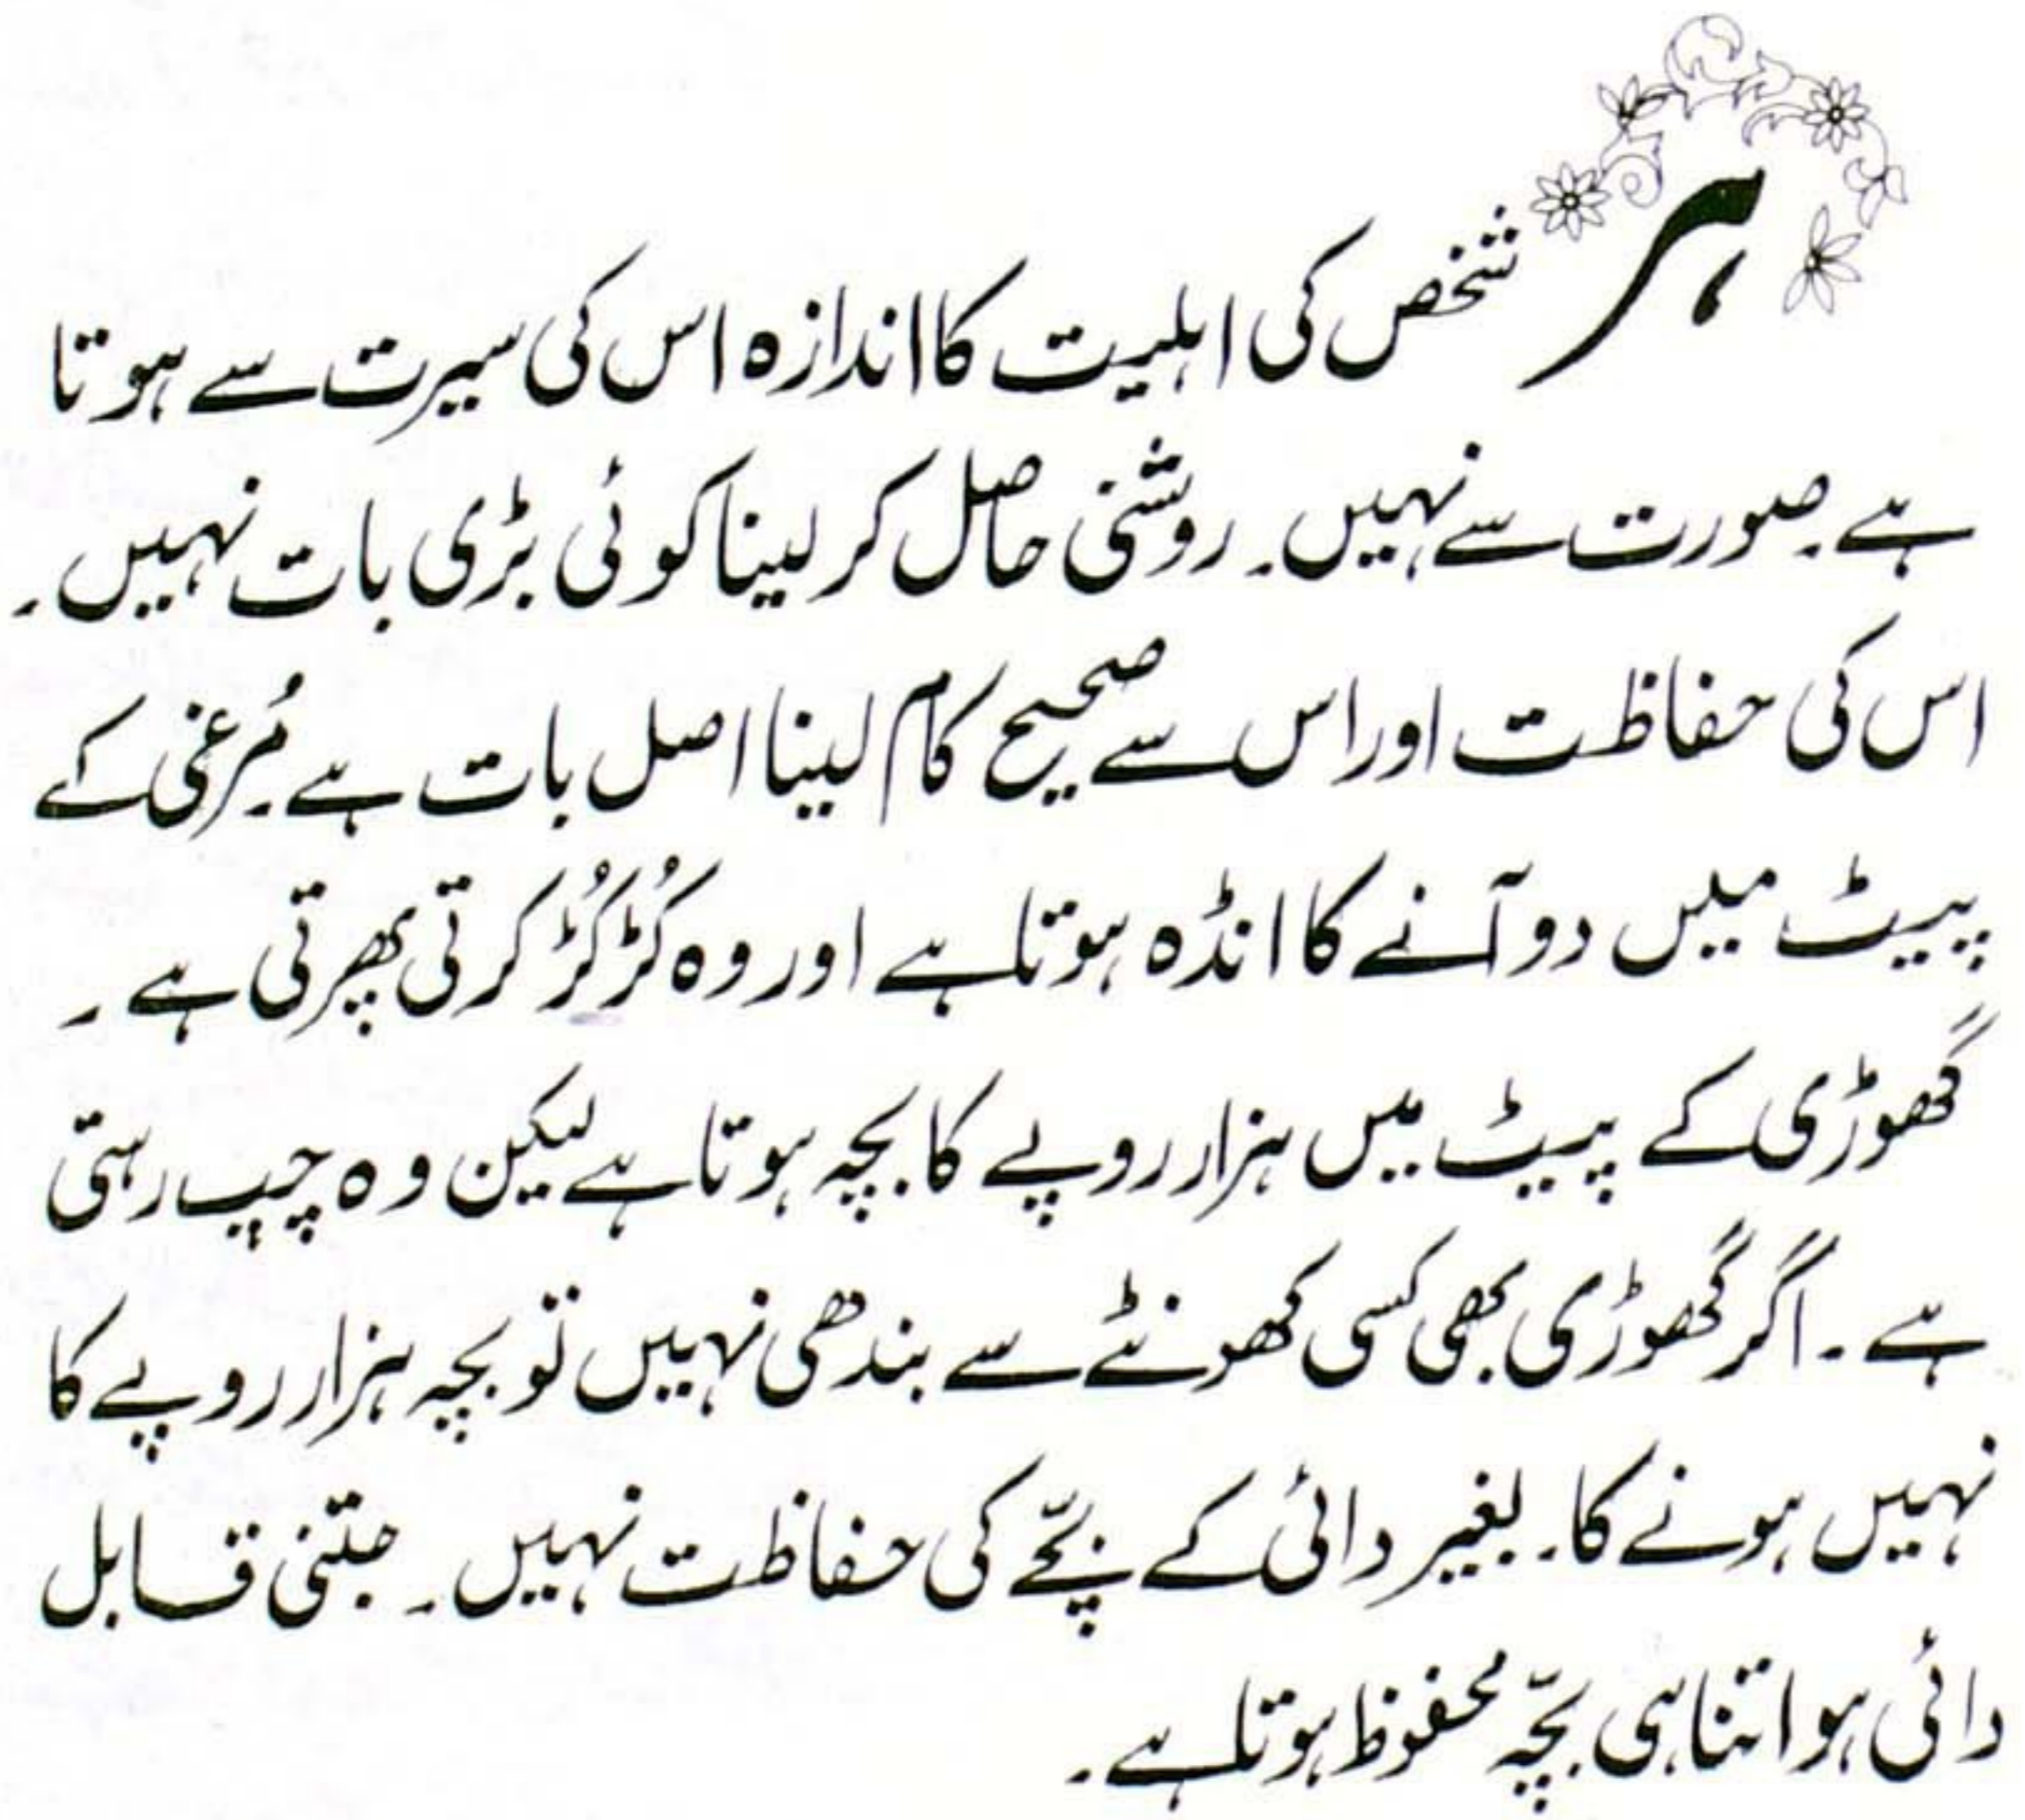 ہر شخص کی اہلیت کا اندازہ اس کی سیرت سے ہوتا
ہے صورت سے نہیں۔ روشنی حاصل کرلینا کوئی بڑی بات نہیں۔
اس کی حفاظت اور اس سے صحیح کام لینا اصل بات ہے۔ مُرغی کے
پیٹ میں دو آنے کا انڈہ ہوتا ہے اور وہ کُڑکُڑ کرتی پھرتی ہے۔
گھوڑی کے پیٹ میں ہزار روپے کا بچہ ہوتا ہے لیکن وہ چپ رہتی
ہے۔ اگر گھوڑی بھی کسی کھونٹے سے بندھی نہیں تو بچہ ہزار روپے کا
نہیں ہونے کا۔ بغیر دائی کے بچّے کی حفاظت نہیں۔ جتنی قابل
دائی ہو اتنا ہی بچّہ محفوظ ہوتا ہے۔